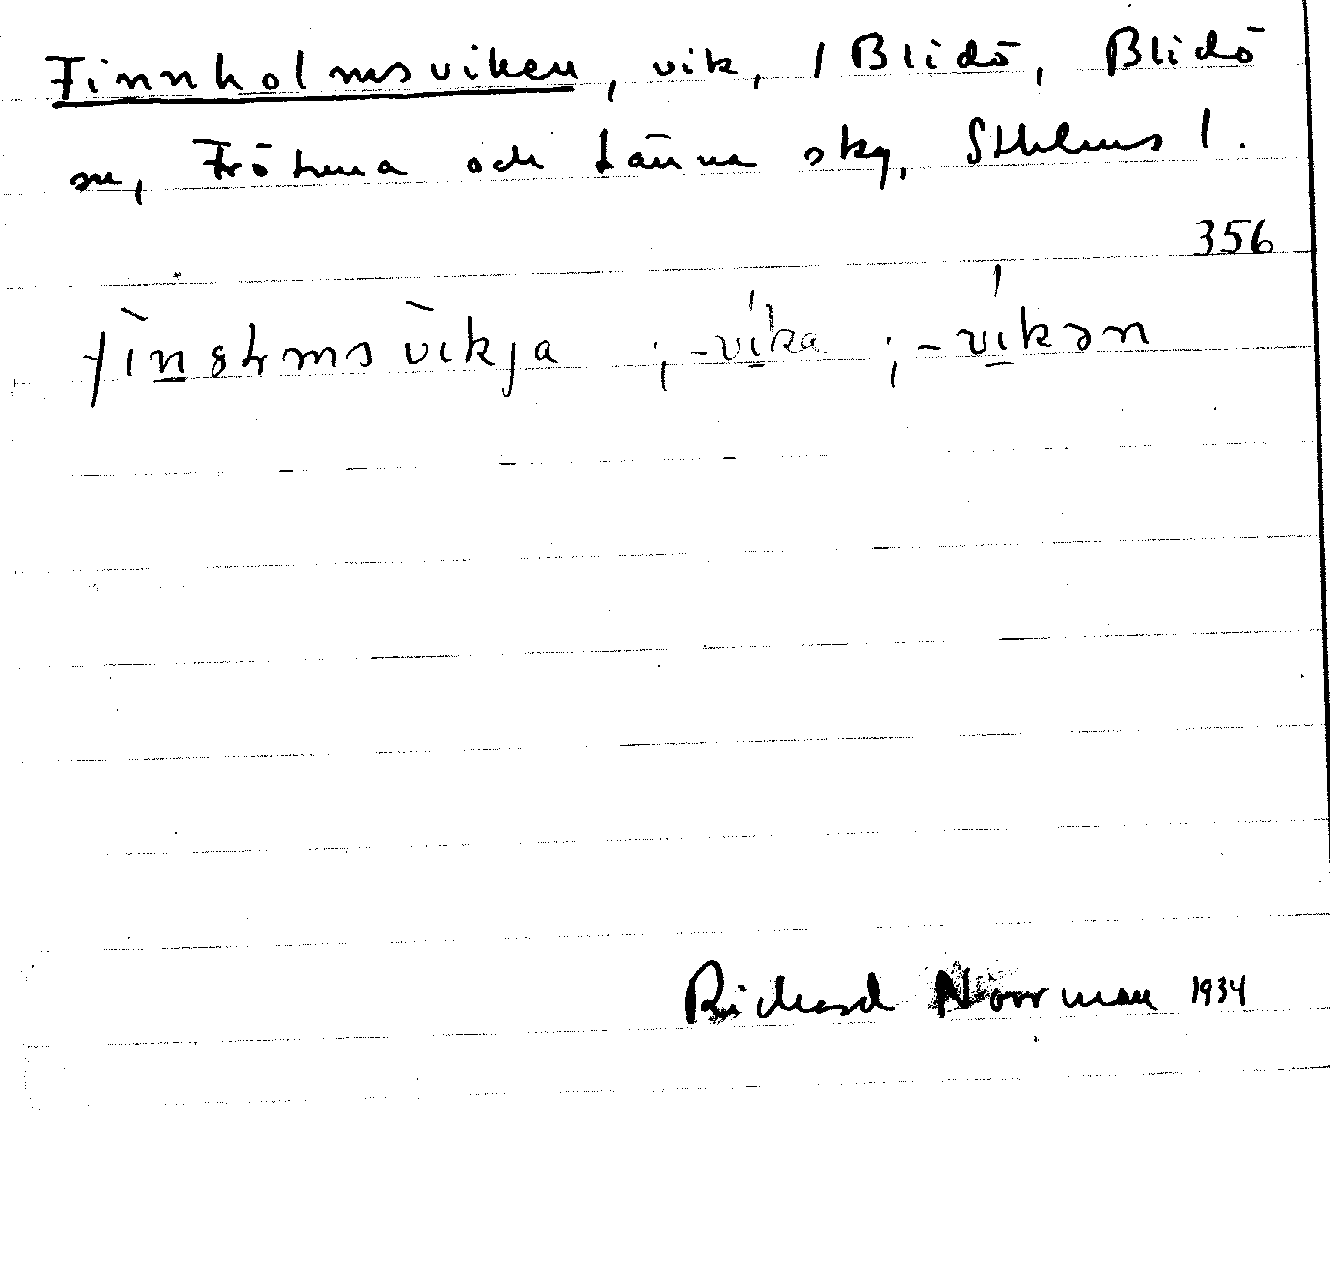 Finnholmsviken, vik, 1 Blidö, Blidö
sn, Frötuna och Länna skg, Sthlms l.
356
; -vika ; -vikən
Richard Noorman 1934